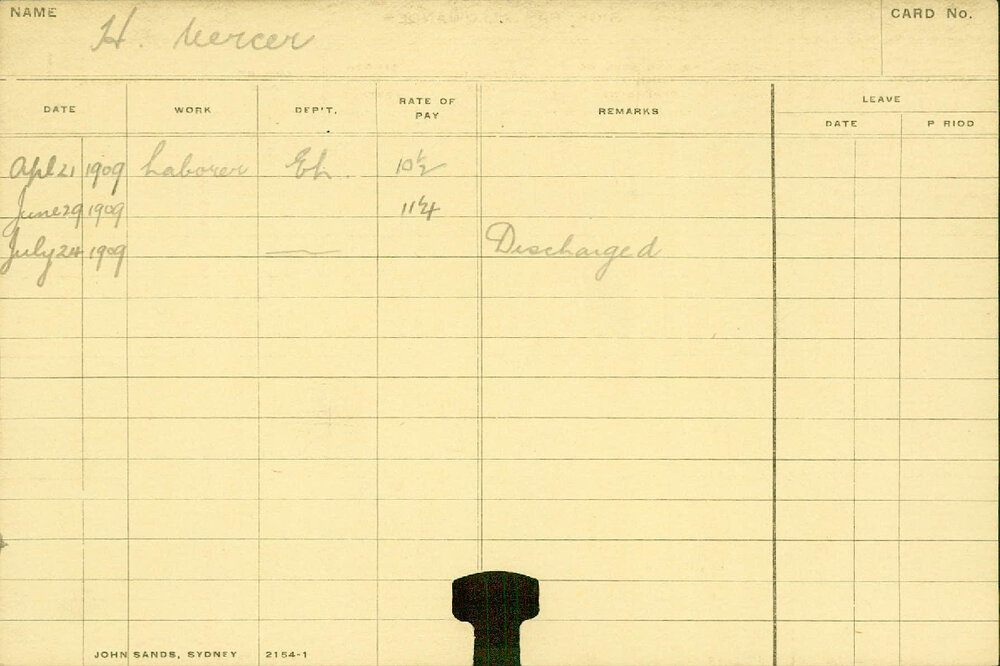 NAME H. Mercer CARD No.
DATE WORK DEP'T. RATE OF PAY REMARKS LEAVE
DATE P RIOD
Apl 21 1909 Laborer Eh. 10½
June 29 1909 11¼
July 24 1909 — Discharged
JOHN SANDS, SYDNEY 2154-1